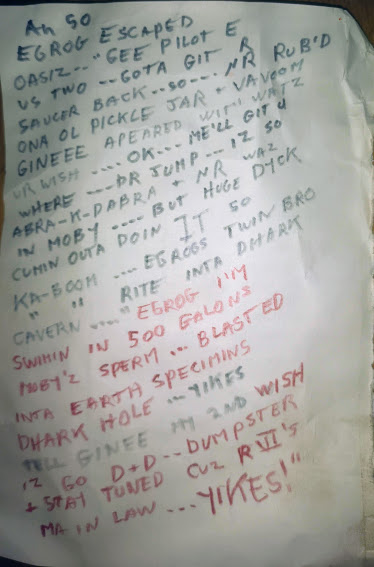 An So
EGROG ESCAPED
OASIZ.. "GEE PILOT E
US TWO -- GOTA GIT R
SAUCER BACK..so--. NR RUB'D
ONA OL PICKLE JAR + VAVOOM
GINEEE APEARED WIT' WATZ
UR WISH .... OK... ME'LL GIT U
WHERE ---- DR JUMP... IZ SO
ABRA-K-DABRA + NR WAZ
IN MOBY .... BUT HUGE DYCK
CUMIN OUTA DOIN IT SO
KA-BOOM .... EGROGS TWIN BRO
" " RITE INTA DHARK
CAVERN ...." EGROG I'M
SWIMIN IN 500 GALONS
MOBY'Z SPERM ... BLASTED
INTA EARTH SPECIMINS
DHARK HOLE ... YIKES
TELL GINEE MY 2ND WISH
IZ GO D+D .. DUMPSTER
+ STAY TUNED CUZ R VII'S
MA IN LAW ... YIKES!"